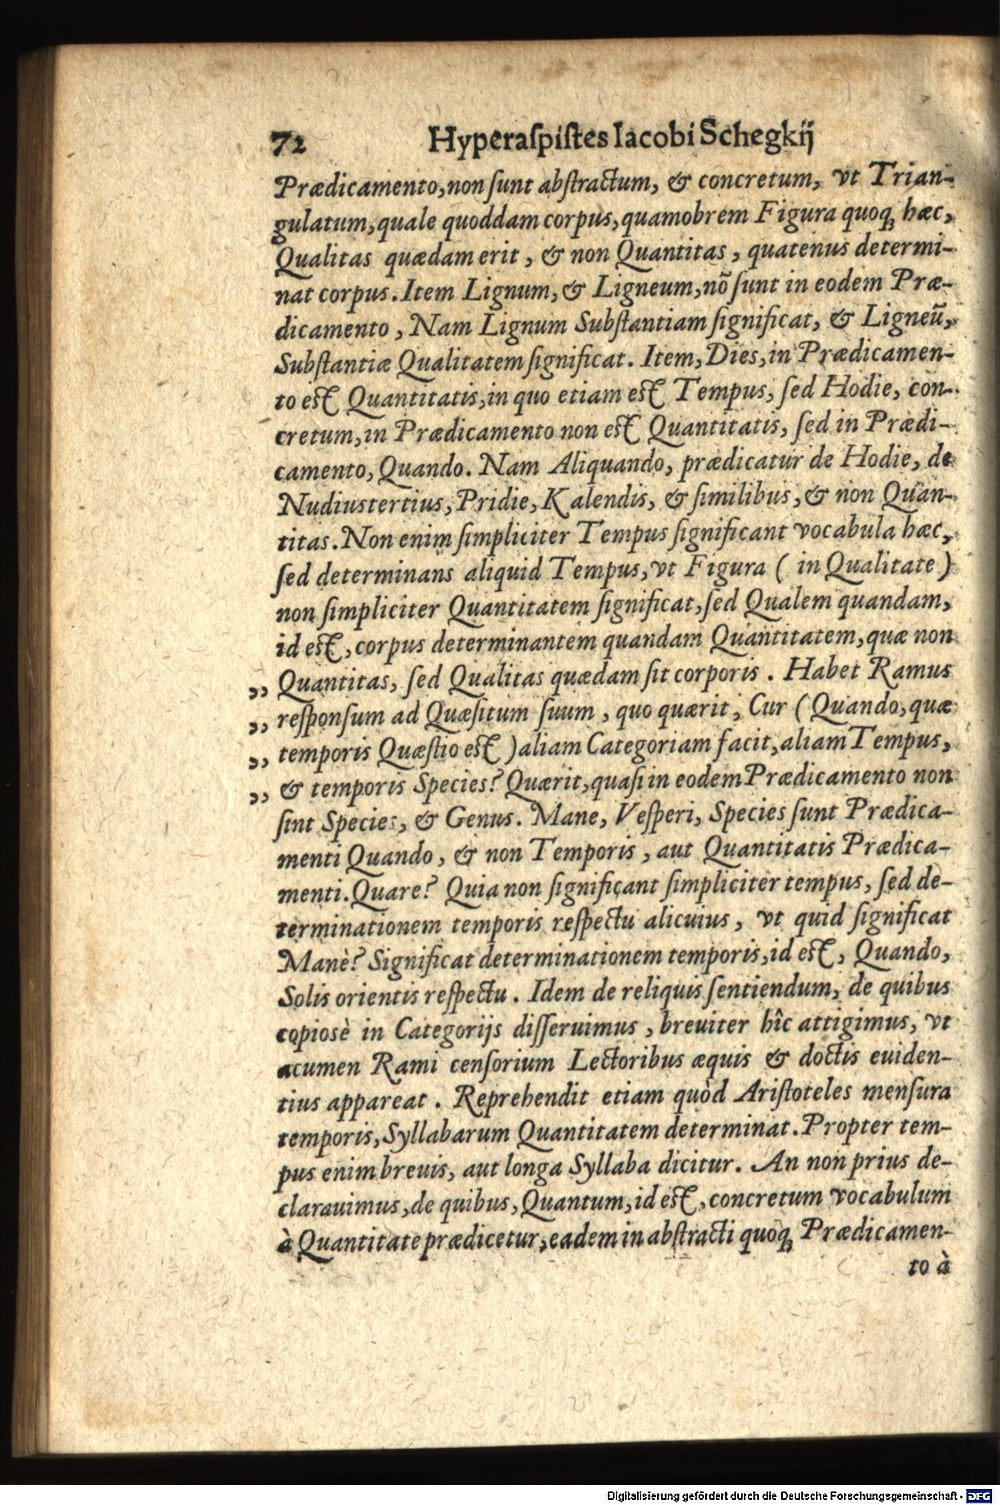 72 Hyperaſpiſtes Iacobi Schegkij
Prædicamento, non ſunt abſtractum, & concretum, vt Trian-
gulatum, quale quoddam corpus, quamobrem Figura quoq; hæc,
Qualitas quædam erit, & non Quantitas, quatenus determi-
nat corpus. Item Lignum, & Ligneum, nō ſunt in eodem Præ-
dicamento, Nam Lignum Subſtantiam ſignificat, & Ligneū,
Subſtantiæ Qualitatem ſignificat. Item, Dies, in Prædicamen-
to eſt Quantitatis, in quo etiam eſt Tempus, ſed Hodie, con-
cretum, in Prædicamento non eſt Quantitatis, ſed in Prædi-
camento, Quando. Nam Aliquando, prædicatur de Hodie, de
Nudiustertius, Pridie, Kalendis, & ſimilibus, & non Quan-
titas. Non enim ſimpliciter Tempus ſignificant vocabula hæc,
ſed determinans aliquid Tempus, vt Figura ( in Qualitate )
non ſimpliciter Quantitatem ſignificat, ſed Qualem quandam,
id eſt, corpus determinantem quandam Quantitatem, quæ non
,, Quantitas, ſed Qualitas quædam ſit corporis. Habet Ramus
,, reſponſum ad Quæſitum ſuum, quo quærit, Cur ( Quando, quæ
,, temporis Quæſtio eſt ) aliam Categoriam facit, aliam Tempus,
,, & temporis Species? Quærit, quaſi in eodem Prædicamento non
ſint Species, & Genus. Mane, Veſperi, Species ſunt Prædica-
menti Quando, & non Temporis, aut Quantitatis Prædica-
menti. Quare? Quia non ſignificant ſimpliciter tempus, ſed de-
terminationem temporis reſpectu alicuius, vt quid ſignificat
Manè? Significat determinationem temporis, id eſt, Quando,
Solis orientis reſpectu. Idem de reliquis ſentiendum, de quibus
copiosè in Categorijs diſſeruimus, breuiter hîc attigimus, vt
acumen Rami cenſorium Lectoribus æquis & doctis euiden-
tius appareat. Reprehendit etiam quòd Ariſtoteles menſura
temporis, Syllabarum Quantitatem determinat. Propter tem-
pus enim breuis, aut longa Syllaba dicitur. An non prius de-
clarauimus, de quibus, Quantum, id eſt, concretum vocabulum
à Quantitate prædicetur, eadem in abſtracti quoq; Prædicamen-
to à
Digitalisierung gefördert durch die Deutsche Forschungsgemeinschaft - DFG